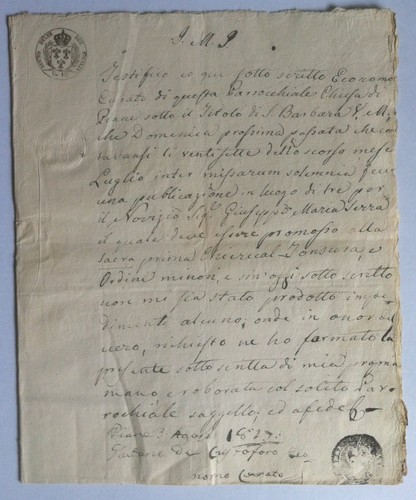 J. M. J.
Testifico io qui sotto scritto Economo
Curato di questa Parrocchiale Chiesa di
Piane sotto il Titolo di S. Barbara V. e M.
che Domenica prossima passata che
li ventisette dello scorso mese
Luglio inter missarum solemnia feci
una publicazione in luogo di tre per
il Novizio Sig.r Giuseppe Maria Serra
il quale deve essere promosso alla
sacra prima Clerical Tonsura, e
Ordini minori, e sin'oggi sotto scritto
non mi sia stato prodotto impe
dimento alcuno; onde in onor del
vero, richiesto ne ho formato la
presente sotto scritta di mia propria
mano e roborata col solito Par
rochiale suggello; ed a fede
Piane 3 Agosto 1817:
Gaetano De Cristoforo Eco
nomo Curato